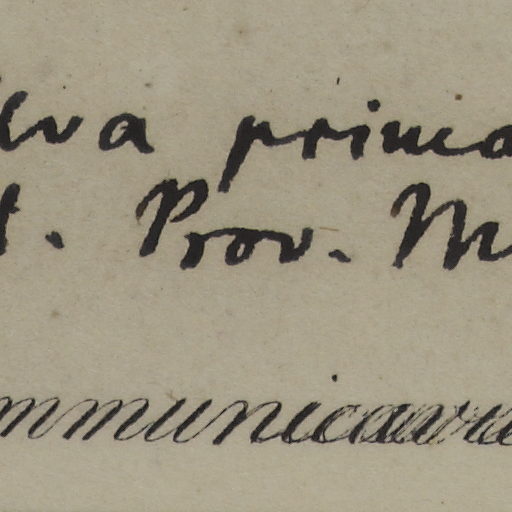 lva prima
t. Prov. M
mmunicavi